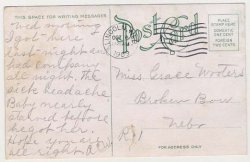 THIS SPACE FOR WRITING MESSAGES
Post Card
PLACE STAMP HERE
DOMESTIC ONE CENT
FOREIGN TWO CENTS
Wed morning
Got here
last night and
had company
all night. The
sick headache
Baby nearly
starved before
he got here.
Hope you are
all right. A.W.
Miss Grace Wooters
Broken Bow
Nebr
R 1
FOR ADDRESS ONLY